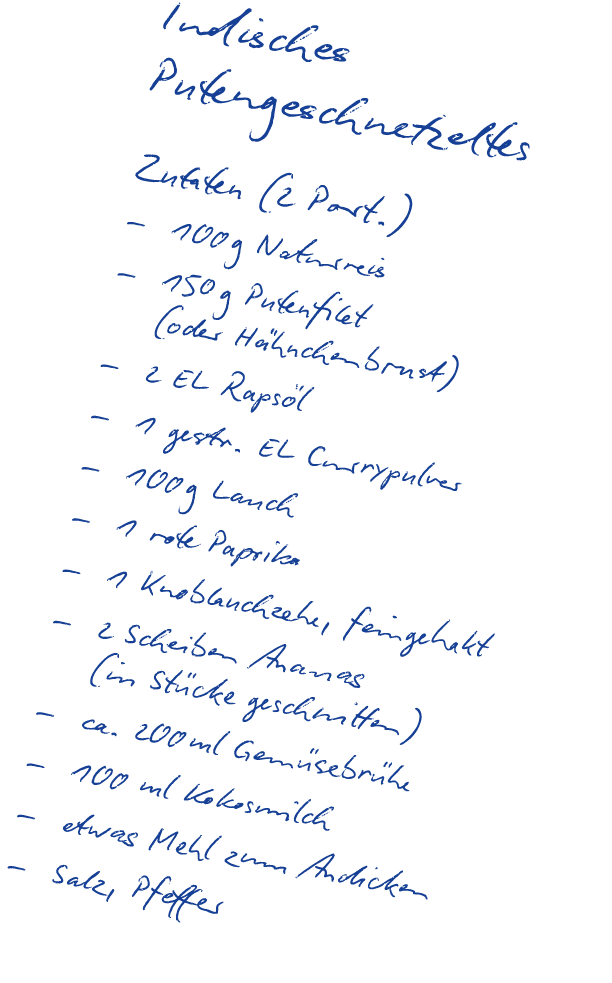 Indisches
Putengeschnetzeltes
Zutaten (2 Port.)
- 100g Naturreis
- 150g Putenfilet
(oder Hähnchenbrust)
- 2 EL Rapsöl
- 1 gestr. EL Currypulver
- 100g Lauch
- 1 rote Paprika
- 1 Knoblauchzehe, feingehakt
- 2 Scheiben Ananas
(in Stücke geschnitten)
- ca. 200ml Gemüsebrühe
- 100 ml Kokosmilch
- etwas Mehl zum Andicken
- Salz, Pfeffer